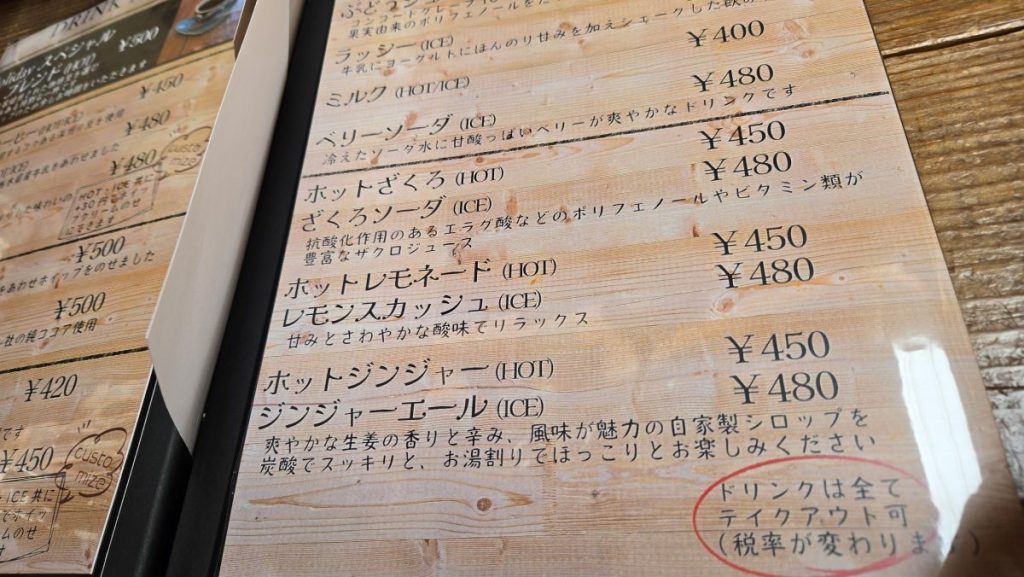 DRINK
スペシャル
ブレンド(HOT)
¥500
¥450
¥480
¥480
custo
mize
HOT、ICE 共に
¥500
あわせホイップをのせました
¥500
社の純ココア使用
¥420
です
¥450
custo
mize
ICE 共に
果実由来のポリフェノールを
ラッシー(ICE)
牛乳にヨーグルトにほんのり甘みを加えシェークした飲
¥400
ミルク(HOT/ICE)
¥480
ベリーソーダ(ICE)
冷えたソーダ水に甘酸っぱいベリーが爽やかなドリンクです
¥450
ホットざくろ(HOT)
¥480
ざくろソーダ(ICE)
抗酸化作用のあるエラグ酸などのポリフェノールやビタミン類が
豊富なザクロジュース
¥450
ホットレモネード(HOT)
¥480
レモンスカッシュ(ICE)
甘みとさわやかな酸味でリラックス
¥450
ホットジンジャー(HOT)
¥480
ジンジャーエール(ICE)
爽やかな生姜の香りと辛み、風味が魅力の自家製シロップを
炭酸でスッキリと、お湯割りでほっこりとお楽しみください
ドリンクは全て
テイクアウト可
(税率が変わりま